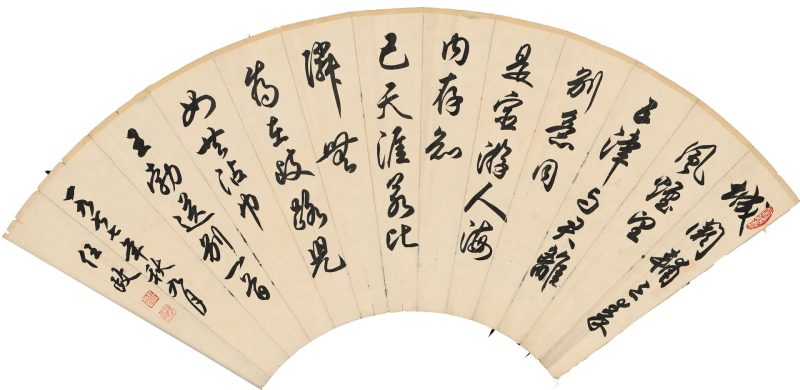 城闕輔三秦
風煙望
五津与君離
别意同
是宦游人海
内存知
己天涯若比
鄰無
為在歧路兒
女共沾巾
王勃送别一首
一九七七年秋九月
任政